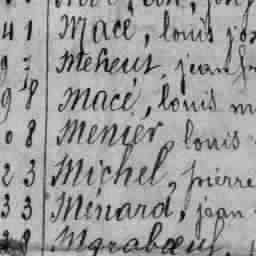 41 Macé, louis jos
Meheut, jean fr
98 Macé, louis m
08 Menier, louis
23 Michel, pierre
33 Menard, jean